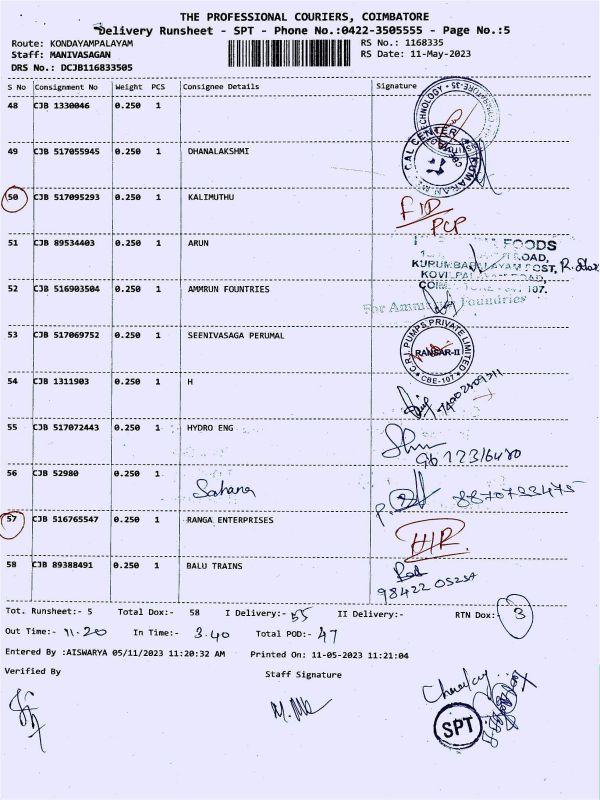 THE PROFESSIONAL COURIERS, COIMBATORE
Delivery Runsheet - SPT - Phone No.:0422-3505555 - Page No.:5
Route: KONDAYAMPALAYAM RS No.: 1168335
Staff: MANIVASAGAN RS Date: 11-May-2023
DRS No.: DCJB116833505
S No Consignment No Weight PCS Consignee Details Signature
48 CJB 1330046 0.250 1
49 CJB 517055945 0.250 1 DHANALAKSHMI
50 CJB 517095293 0.250 1 KALIMUTHU
PCP
51 CJB 89534403 0.250 1 ARUN
FOODS
ROAD,
KURUMBAPALAYAM POST,
107.
52 CJB 516903504 0.250 1 AMMRUN FOUNTRIES
For Ammarun Foundries
53 CJB 517069752 0.250 1 SEENIVASAGA PERUMAL
C.R.I. PUMPS PRIVATE LIMITED
RANSAR-II
CBE-107
54 CJB 1311903 0.250 1 H
55 CJB 517072443 0.250 1 HYDRO ENG
56 CJB 52980 0.250 1
Sahana
8870722475
57 CJB 516765547 0.250 1 RANGA ENTERPRISES
58 CJB 89388491 0.250 1 BALU TRAINS
98422 05251
Tot. Runsheet:- 5 Total Dox:- 58 I Delivery:- 55 II Delivery:- RTN Dox:- 3
Out Time:- 11.20 In Time:- 3.40 Total POD:- 47
Entered By :AISWARYA 05/11/2023 11:20:32 AM Printed On: 11-05-2023 11:21:04
Verified By Staff Signature
SPT